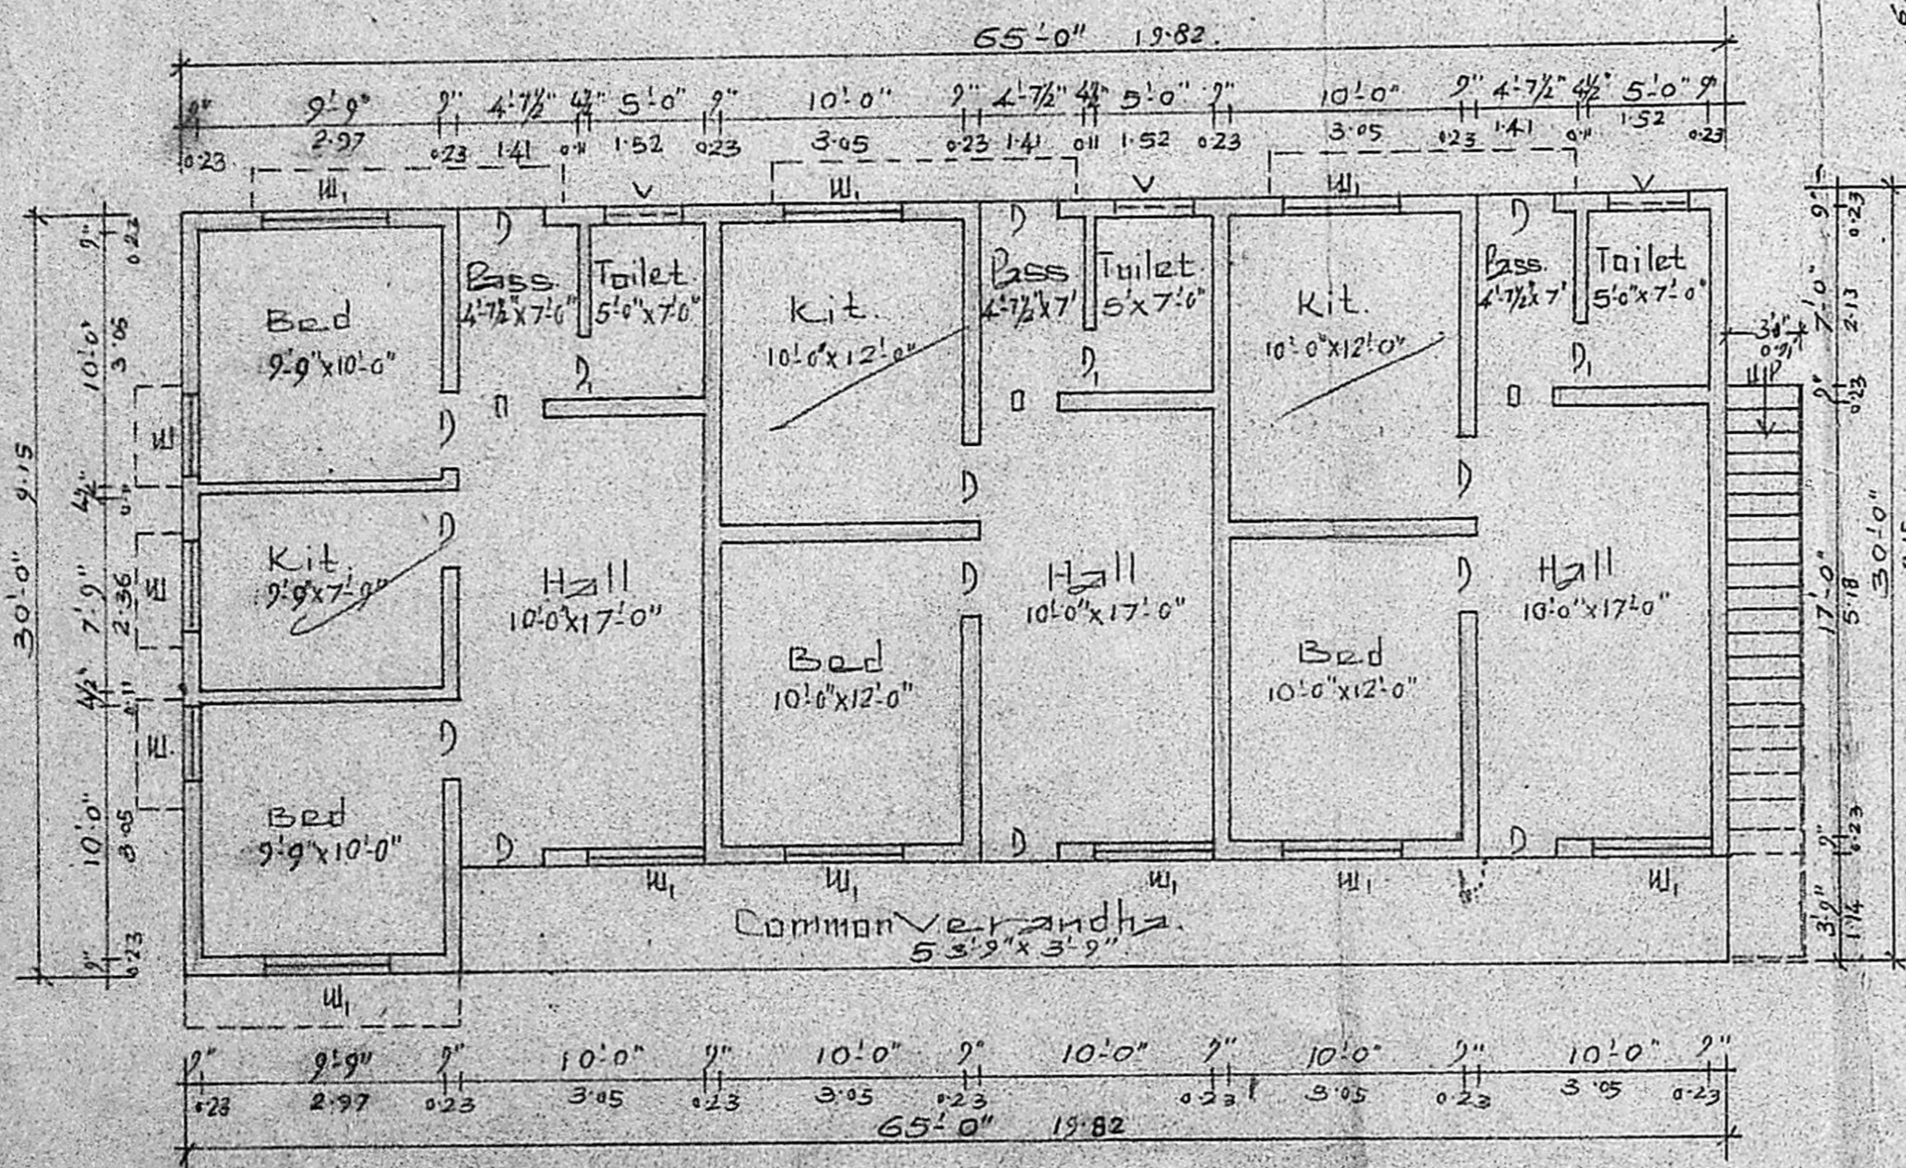 65'-0" 19.82.
9" 9'-9" 9" 4'-7½" 4½" 5'-0" 9" 10'-0" 9" 4'-7½" 4½" 5'-0" 9" 10'-0" 9" 4'-7½" 4½" 5'-0" 9"
0.23 2.97 0.23 1.41 0.11 1.52 0.23 3.05 0.23 1.41 0.11 1.52 0.23 3.05 0.23 1.41 0.11 1.52 0.23
W₁ V W₁ V W₁ V
D D D
Bed
9'-9"x10'-0"
Pass.
4'-7½"x7'-0"
Toilet.
5'-0"x7'-0"
Kit.
10'-0"x12'-0"
Pass
4'-7½"x7'
Toilet.
5'x7'-0"
Kit.
10'-0"x12'-0"
Pass.
4'-7½"x7'
Toilet
5'-0"x7'-0"
3'-0"
0.91
UP
D₁ D₁ D₁
D
W
D D
D
Kit.
9'-9"x7'-9"
W
Hall
10'-0"x17'-0"
D
Hall
10'-0"x17'-0"
D
Hall
10'-0"x17'-0"
Bed
10'-0"x12'-0"
Bed
10'-0"x12'-0"
D
W
Bed
9'-9"x10'-0"
D D D
W₁ W₁ W₁ W₁ W₁
Common Verandha.
53'-9"x3'-9"
W₁
30'-0" 9.15
9" 10'-0" 4½" 7'-9" 4½" 10'-0" 9"
0.23 3.05 0.11 2.36 0.11 3.05 0.23
9" 7'-0" 9" 17'-0" 9" 3'-9"
0.23 2.13 0.23 5.18 0.23 1.14
30'-0"
9" 9'-9" 9" 10'-0" 9" 10'-0" 9" 10'-0" 9" 10'-0" 9" 10'-0" 9"
0.23 2.97 0.23 3.05 0.23 3.05 0.23 0.23 3.05 0.23 3.05 0.23
65'-0" 19.82